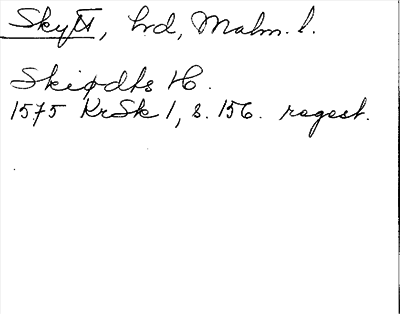 Skytt, hrd, Malm. l.
Skiødts H.
1575 KrSk 1, s. 156. regest.